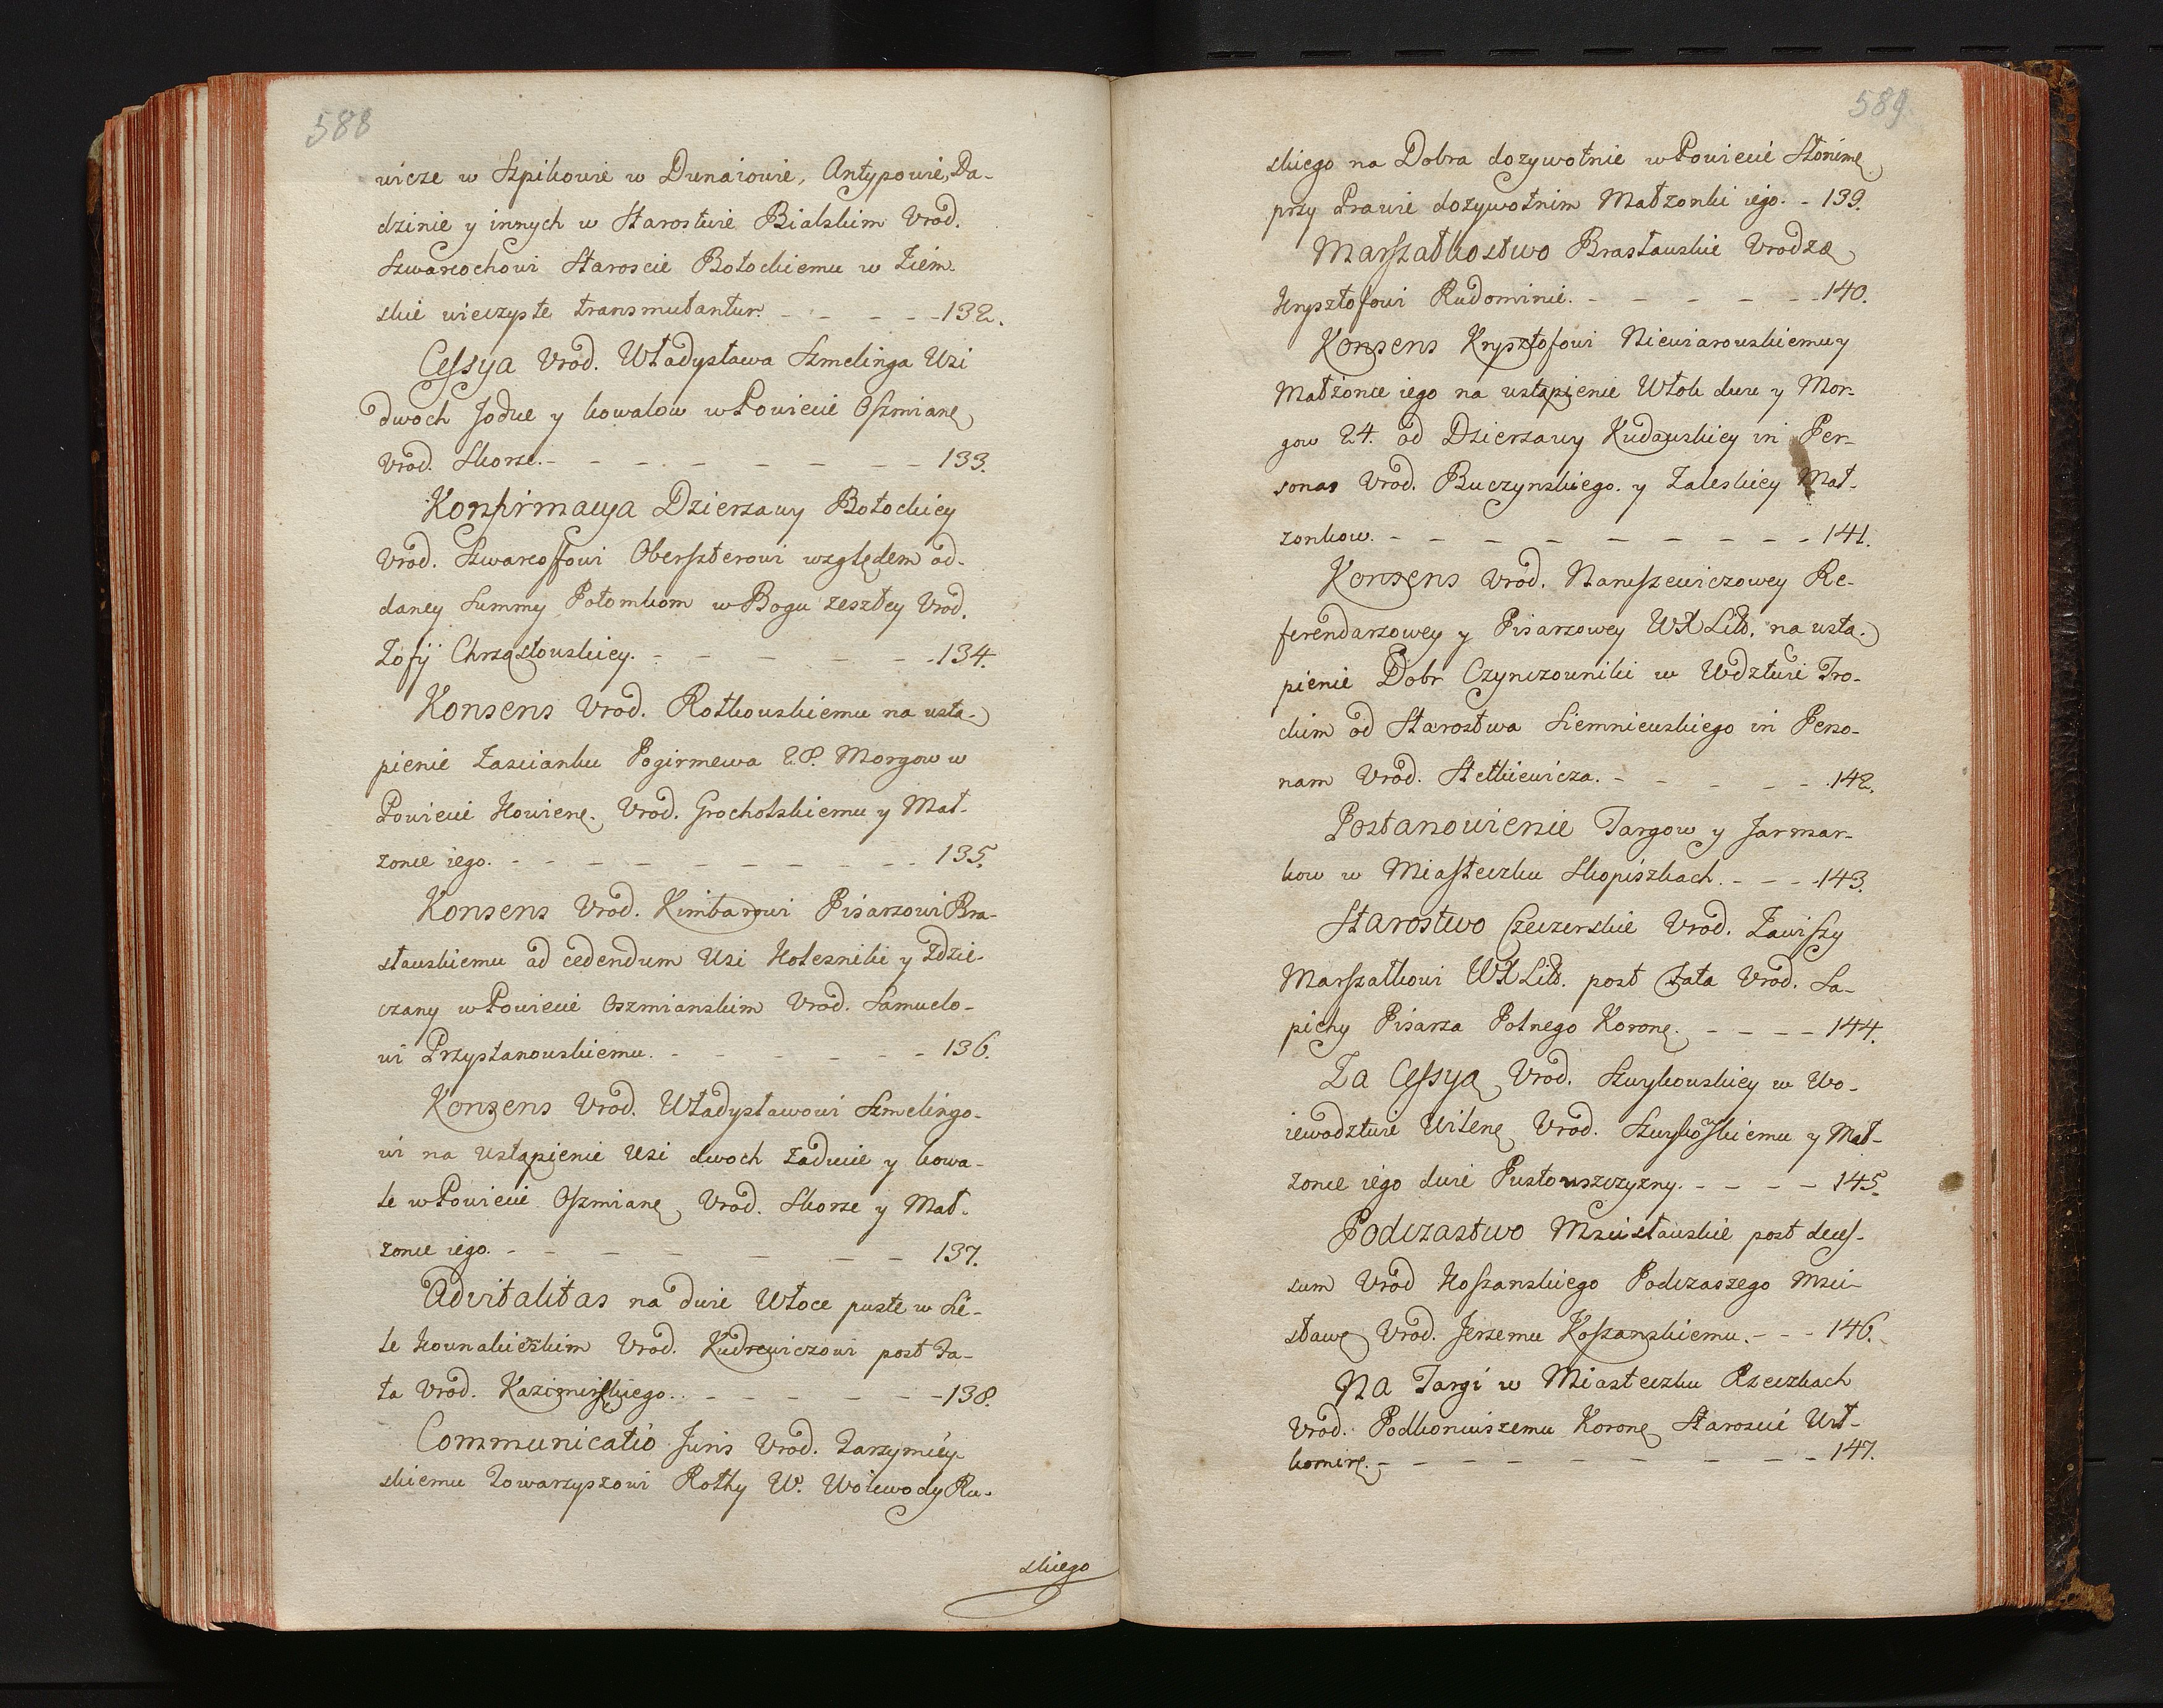 588
wicze w Szpikowie w Dunaiowie, Antypowie, Da-
dzinie y innych w Starostwie Bialskim Vrod.
Szwarcochowi Staroscie Botockiemu w Ziem-
skie wieczyste transmutantur. - - - - - 132.
Cessya Vrod. Władysława Szmelinga Wsi
dwoch Jodue y kowalow w Powiecie Oszmianę
Vrod. Skorze. - - - - - - - - 133.
Konfirmacya Dzierzawy Botockiey
Vrod. Szwarcoffowi Oberszterowi względem od-
daney Summy Potomkom w Bogu zeszłey Vrod.
Zofij Chrząstowskiey. - - - - - - 134.
Konsens Vrod. Rotkowskiemu na ustą-
pienie Zascianku Pogirmewa 28. Morgow w
Powiecie Kowienę. Vrod. Grocholskiemu y Mał-
zonce iego. - - - - - - - - - 135.
Konsens Vrod. Kimbarowi Pisarzowi Bra-
sławskiemu ad cedendum Wsi Kolesniki y Zdzie-
czany w Powiecie Oszmianskim Vrod. Samuelo-
wi Przystanowskiemu. - - - - - - 136.
Konsens Vrod. Władysławowi Szmelingo-
wi na Ustąpienie Wsi dwoch Zaduie y kowa-
le w Powiecie Oszmianę Vrod. Skorze y Mał-
zonce iego. - - - - - - - 137.
Advitalitas na dwie Włoce puste w Sie-
le kownakieskim Vrod. Kudrewiczowi post Fa-
ta Vrod. Kazimirskiego. - - - - - - 138.
Communicatio Juris Vrod. Jarzymiey-
skiemu Towarzyszowi Rothy W. Woiewody Ru-
skiego
589
skiego na Dobra dozywotnie w Powiecie Słonimę
przy Prawie dozywotnim Małzonki iego. - 139.
Marszałkostwo Brasławskie Vrodzę
Krysztofowi Rudominie. - - - - - 140.
Konsens Krysztofowi Niewiarowskiemu y
Małżonce iego na ustąpienie Włok dwu y Mor-
gow 24. od Dzierzawy Kudawskiey in Per-
sonas Vrod. Buczynskiego. y Zaleskiey Mał-
zonkow. - - - - - - - - 141.
Konsens Vrod. Naruszewiczowey Re-
ferendarzowey y Pisarzowey WXLitt. na ustą-
pienie Dobr Czynczowniki w Wdztwie Tro-
ckim od Starostwa Siemniewskiego in Perso-
nam Vrod. Stetkiewicza. - - - - - 142.
Postanowienie Targow y Jarmar-
kow w Miasteczku Skopiszkach. - - - 143.
Starostwo Czeczerskie Vrod. Zawiszy
Marszałkowi WXLitt. post Fata Vrod. Sa-
piehy Pisarza Polnego Koronę. - - - - 144.
Za Cessyą Vrod. Szwykowskiey w Wo-
iewodztwie Wilenę Vrod. Szwykowskiemu y Mał-
zonce iego dwie Pustowszczyzny. - - - - 145.
Podczastwo Mscisławskie post deces-
sum Vrod Koszanskiego Podczaszego Msci-
sławę Vrod. Jerzemu Koszanskiemu. - - - 146.
Na Targi w Miasteczku Rzeczkach
Vrod. Podkoniuszemu Koronę Staroscie Wił-
komirę. - - - - - - - - 147.